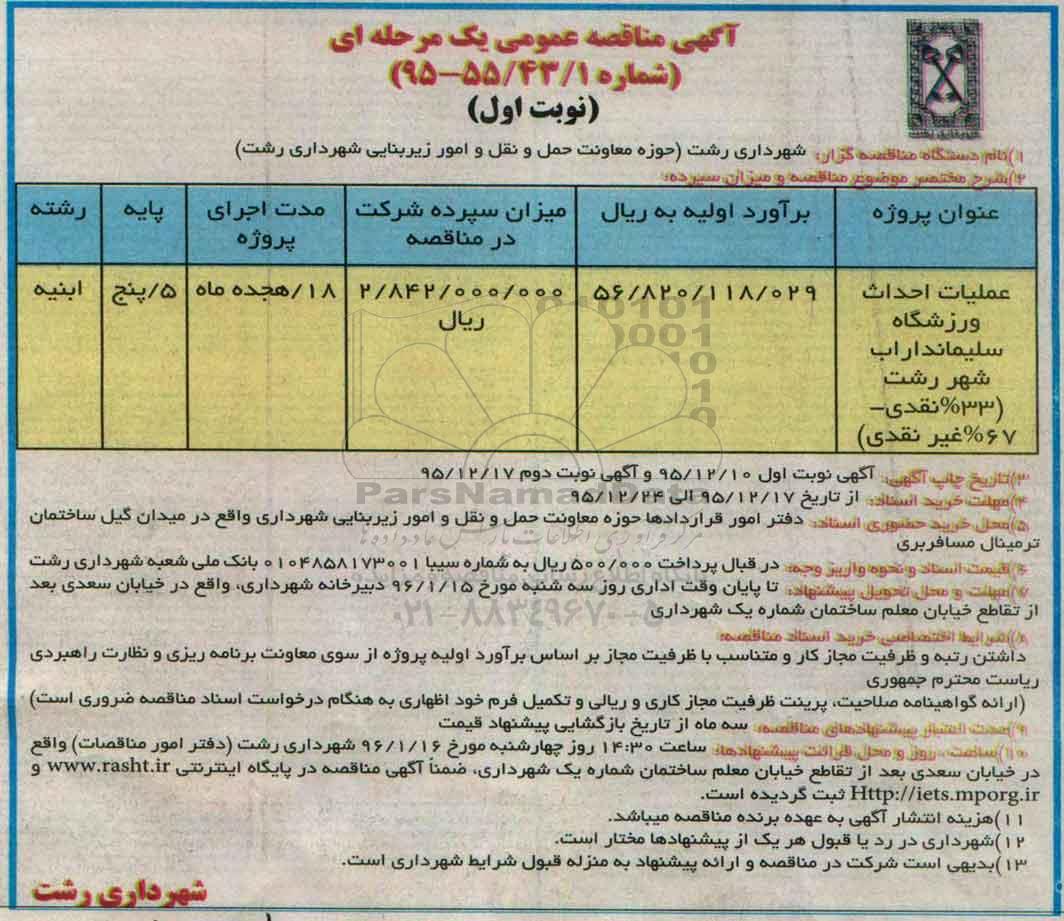 آگهی مناقصه عمومی یک مرحله ای
(شماره ۵۵/۴۳/۱-۹۵)
(نوبت اول)
۱)نام دستگاه مناقصه گزار: شهرداری رشت (حوزه معاونت حمل و نقل و امور زیربنایی شهرداری رشت)
۲)شرح مختصر موضوع مناقصه و میزان سپرده:
عنوان پروژه
برآورد اولیه به ریال
میزان سپرده شرکت در مناقصه
مدت اجرای پروژه
پایه
رشته
عملیات احداث
ورزشگاه
سلیمانداراب
شهر رشت
(۳۳%نقدی-
۶۷%غیر نقدی)
۵۶/۸۲۰/۱۱۸/۰۲۹
۲/۸۴۲/۰۰۰/۰۰۰
ریال
۱۸/هجده ماه
۵/پنج
ابنیه
۳)تاریخ چاپ آگهی: آگهی نوبت اول ۹۵/۱۲/۱۰ و آگهی نوبت دوم ۹۵/۱۲/۱۷
۴)مهلت خرید اسناد: از تاریخ ۹۵/۱۲/۱۷ الی ۹۵/۱۲/۲۴
۵)محل خرید حضوری اسناد: دفتر امور قراردادها حوزه معاونت حمل و نقل و امور زیربنایی شهرداری واقع در میدان گیل ساختمان
ترمینال مسافربری
۶)قیمت اسناد و نحوه واریز وجه: در قبال پرداخت ۵۰۰/۰۰۰ ریال به شماره سیبا ۰۱۰۴۸۵۸۱۷۳۰۰۱ بانک ملی شعبه شهرداری رشت
۷)مهلت و محل تحویل پیشنهاد: تا پایان وقت اداری روز سه شنبه مورخ ۹۶/۱/۱۵ دبیرخانه شهرداری، واقع در خیابان سعدی بعد
از تقاطع خیابان معلم ساختمان شماره یک شهرداری
۸)شرایط اختصاصی خرید اسناد مناقصه:
داشتن رتبه و ظرفیت مجاز کار و متناسب با ظرفیت مجاز بر اساس برآورد اولیه پروژه از سوی معاونت برنامه ریزی و نظارت راهبردی
ریاست محترم جمهوری
(ارائه گواهینامه صلاحیت، پرینت ظرفیت مجاز کاری و ریالی و تکمیل فرم خود اظهاری به هنگام درخواست اسناد مناقصه ضروری است)
۹)مدت اعتبار پیشنهادهای مناقصه: سه ماه از تاریخ بازگشایی پیشنهاد قیمت
۱۰)ساعت، روز و محل قرائت پیشنهادها: ساعت ۱۴:۳۰ روز چهارشنبه مورخ ۹۶/۱/۱۶ شهرداری رشت (دفتر امور مناقصات) واقع
در خیابان سعدی بعد از تقاطع خیابان معلم ساختمان شماره یک شهرداری، ضمناً آگهی مناقصه در پایگاه اینترنتی www.rasht.ir و
Http://iets.mporg.ir ثبت گردیده است.
۱۱)هزینه انتشار آگهی به عهده برنده مناقصه میباشد.
۱۲)شهرداری در رد یا قبول هر یک از پیشنهادها مختار است.
۱۳)بدیهی است شرکت در مناقصه و ارائه پیشنهاد به منزله قبول شرایط شهرداری است.
شهرداری رشت
ParsNamadData
۰۲۱-۸۸۳۴۹۶۷۰-۵